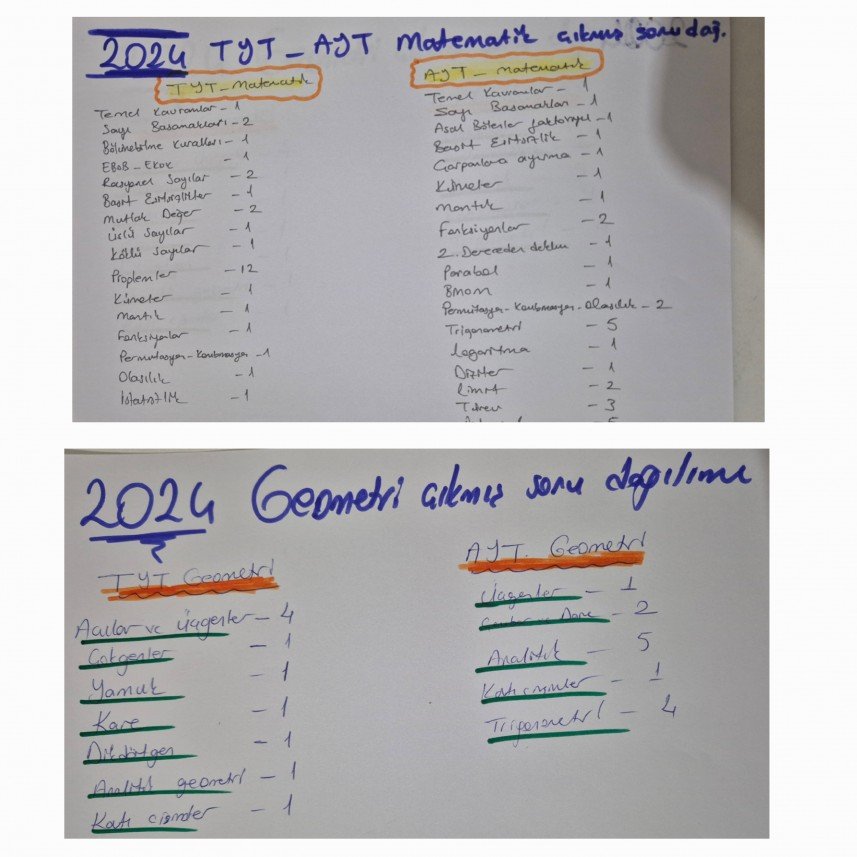 2024 TYT_AYT Matematik çıkmış soru dağ.
TYT_Matematik
Temel Kavramlar - 1
Sayı Basamakları - 2
Bölünebilme Kuralları - 1
EBOB_EKOK - 1
Rasyonel Sayılar - 2
Basit Eşitsizlikler - 1
Mutlak Değer - 2
Üslü Sayılar - 1
Köklü Sayılar - 1
Proplemler - 12
Kümeler - 1
Mantık - 1
Fonksiyonlar - 1
Permutasyon-Kombinasyon - 1
Olasılık - 1
İstatistik - 1
AYT_Matematik
Temel Kavramlar - 1
Sayı Basamakları - 1
Asal Bölenler faktoriyel - 1
Basit Eşitsizlik - 1
Çarpanlara ayırma - 1
Kümeler - 1
Mantık - 1
Fonksiyonlar - 2
2. Dereceden denklem - 1
Parabol - 1
Binom - 1
Permutasyon-Kombinasyon-Olasılık - 2
Trigonometri - 5
Logaritma - 1
Diziler - 1
Limit - 2
Türev - 3
2024 Geometri çıkmış soru dağılımı
TYT Geometri
Açılar ve Üçgenler - 4
Çokgenler - 1
Yamuk - 1
Kare - 1
Dikdörtgen - 1
Analitik geometri - 1
Katı cisimler - 1
AYT. Geometri
Üçgenler - 1
Çember ve Daire - 2
Analitik - 5
Katı cisimler - 1
Trigonometri - 4